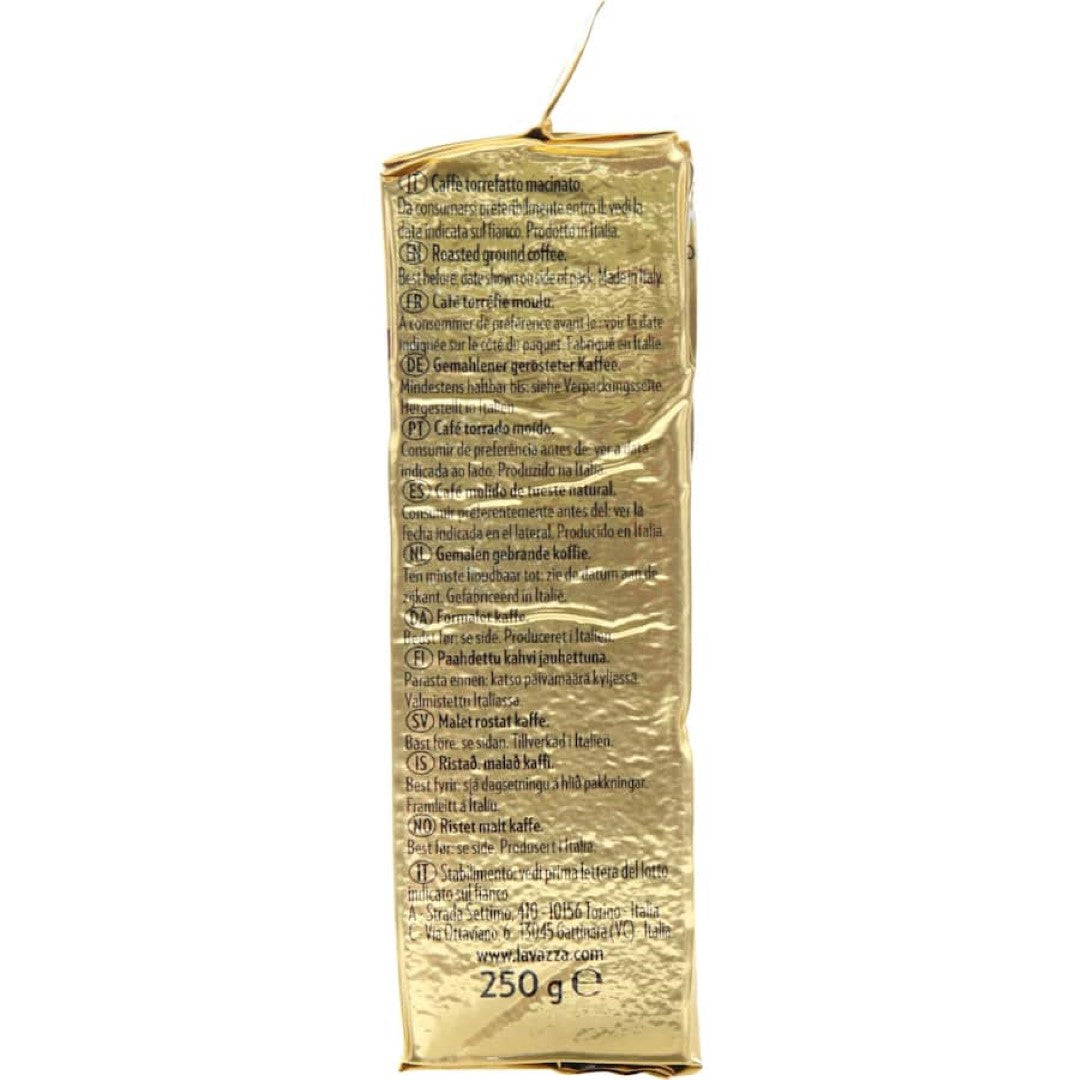 IT Caffè torrefatto macinato.
Da consumarsi preferibilmente entro il: vedi la
data indicata sul fianco. Prodotto in Italia.
EN Roasted ground coffee.
Best before: date shown on side of pack. Made in Italy.
FR Café torréfié moulu.
A consommer de préférence avant le: voir la date
indiquée sur le côté du paquet. Fabriqué en Italie.
DE Gemahlener gerösteter Kaffee.
Mindestens haltbar bis: siehe Verpackungsseite.
Hergestellt in Italien.
PT Café torrado moído.
Consumir de preferência antes de: ver a data
indicada ao lado. Produzido na Italia.
ES Café molido de tueste natural.
Consumir preferentemente antes del: ver la
fecha indicada en el lateral. Producido en Italia.
NL Gemalen gebrande koffie.
Ten minste houdbaar tot: zie de datum aan de
zijkant. Gefabriceerd in Italië.
DA Formalet kaffe.
Bedst før: se side. Produceret i Italien.
FI Paahdettu kahvi jauhettuna.
Parasta ennen: katso päivämäärä kyljessä.
Valmistettu Italiassa.
SV Malet rostat kaffe.
Bäst före: se sidan. Tillverkad i Italien.
IS Ristað, malað kaffi.
Best fyrir: sjá dagsetningu á hlið pakkningar.
Framleitt á Ítalíu.
NO Ristet malt kaffe.
Best før: se side. Produsert i Italia.
IT Stabilimento: vedi prima lettera del lotto
indicato sul fianco
A - Strada Settimo, 410 - 10156 Torino - Italia
C - Via Ottaviano, 6 - 13045 Gattinara (VC) - Italia
www.lavazza.com
250 g ℮